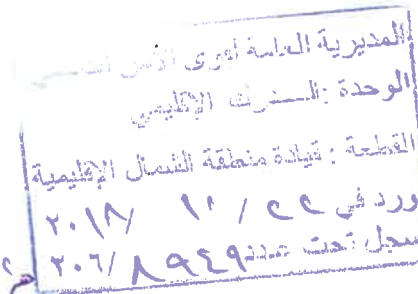 المديرية العامة لقوى الأمن
الوحدة : الـدرك الإقليمي
القطعة : قيادة منطقة الشمال الإقليمية
ورد في ٢٢ / ١١ / ٢٠١٧
سجل تحت عدد ٨٩٤٩ /٢٠٦